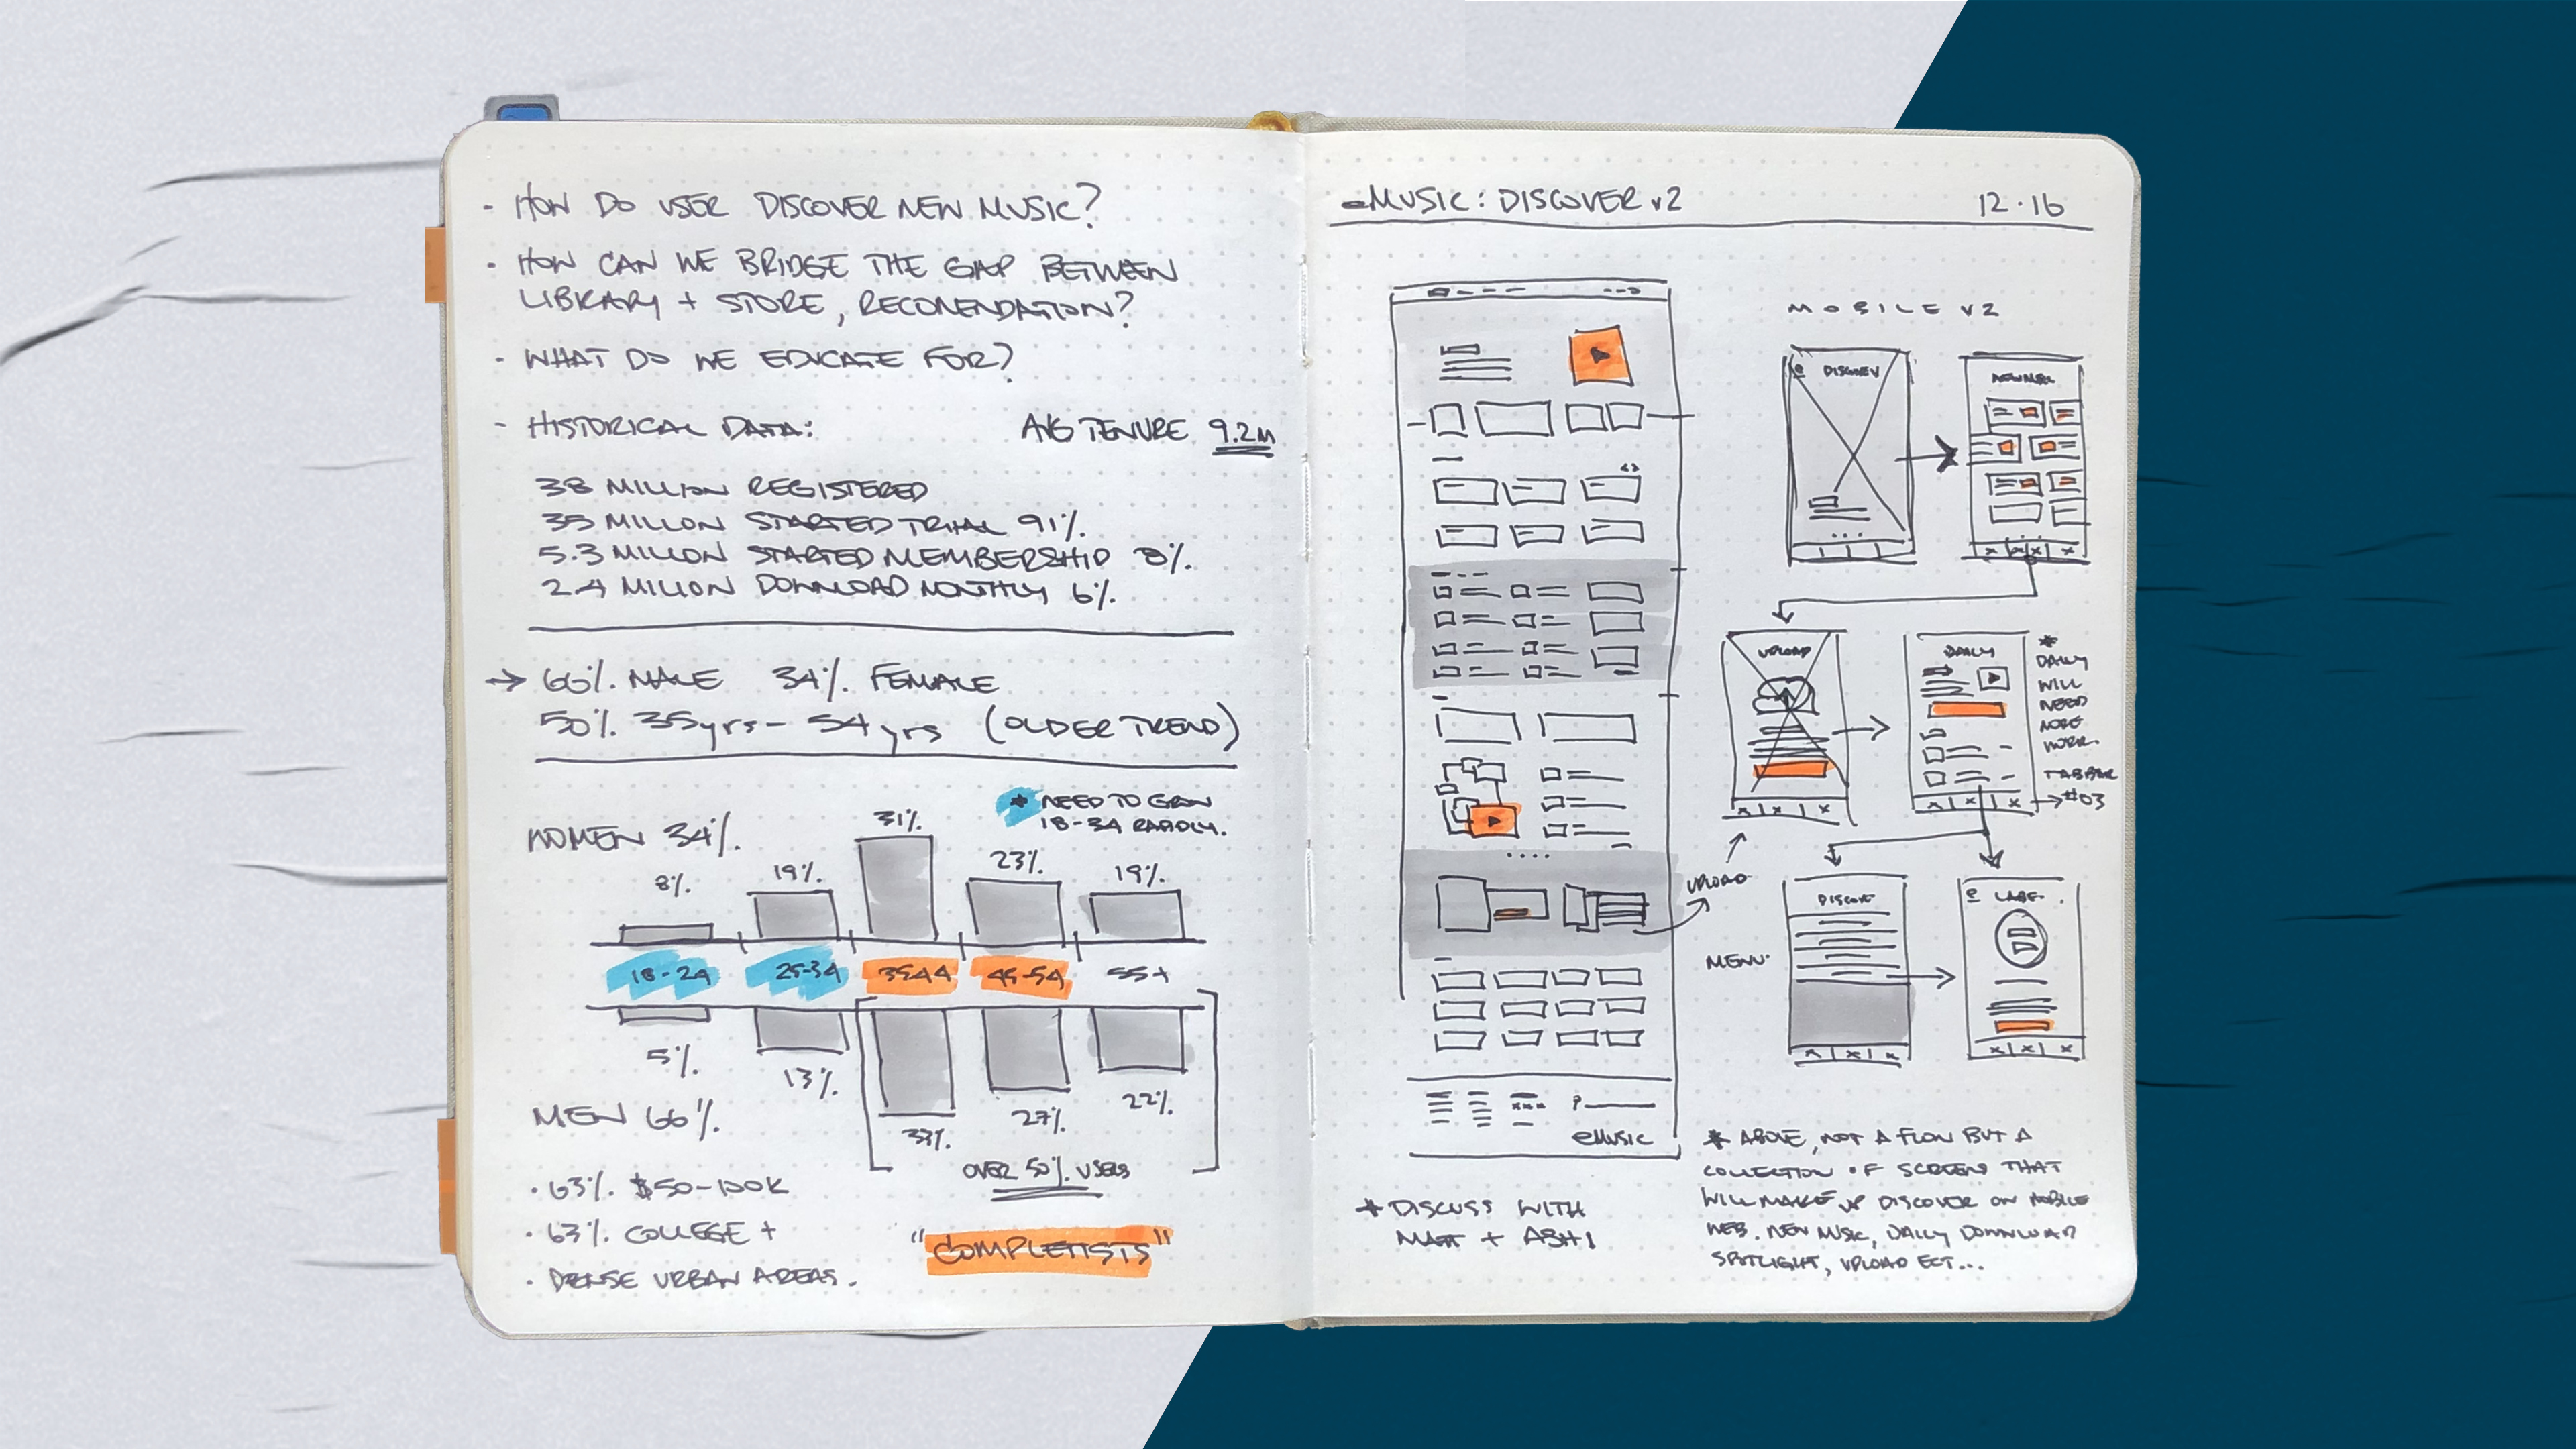 - HOW DO USER DISCOVER NEW MUSIC?
- HOW CAN WE BRIDGE THE GAP BETWEEN
LIBRARY + STORE, RECONENDATION?
- WHAT DO WE EDUCATE FOR?
- HISTORICAL DATA:
AVG TENURE 9.2M
38 MILLION REGISTERED
35 MILLON STARTED TRIAL 91%.
5.3 MILLON STARTED MEMBERSHIP 8%.
2.4 MILLION DOWNLOAD MONTHLY 6%.
→ 66%. MALE 34%. FEMALE
50%. 35yrs - 54yrs (OLDER TREND)
* NEED TO GROW
18-34 RAPIDLY.
WOMEN 34%.
8%. 19%. 31%. 23%. 19%.
18-24 25-34 35-44 45-54 55+
5%. 13%. 27%. 22%.
MEN 66%.
OVER 50%. USERS
• 63%. $50-100K
• 63%. COLLEGE +
• DENSE URBAN AREAS.
"COMPLETISTS"
eMUSIC: DISCOVER v2
12.16
MOBILE V2
DISCOVER
UPLOAD
DAILY
*
DAILY
WILL
NEED
MORE
WORK.
TABBAR
→ #03
UPLOAD
MENU.
DISCOVER
LABEL.
eMUSIC
* DISCUSS WITH
MATT + ASHI
* ABOVE, NOT A FLOW BUT A
COLLECTION OF SCREENS THAT
WILL MAKE UP DISCOVER ON MOBILE
WEB. NEW MUSIC, DAILY DOWNLOAD
SPOTLIGHT, UPLOAD ECT...